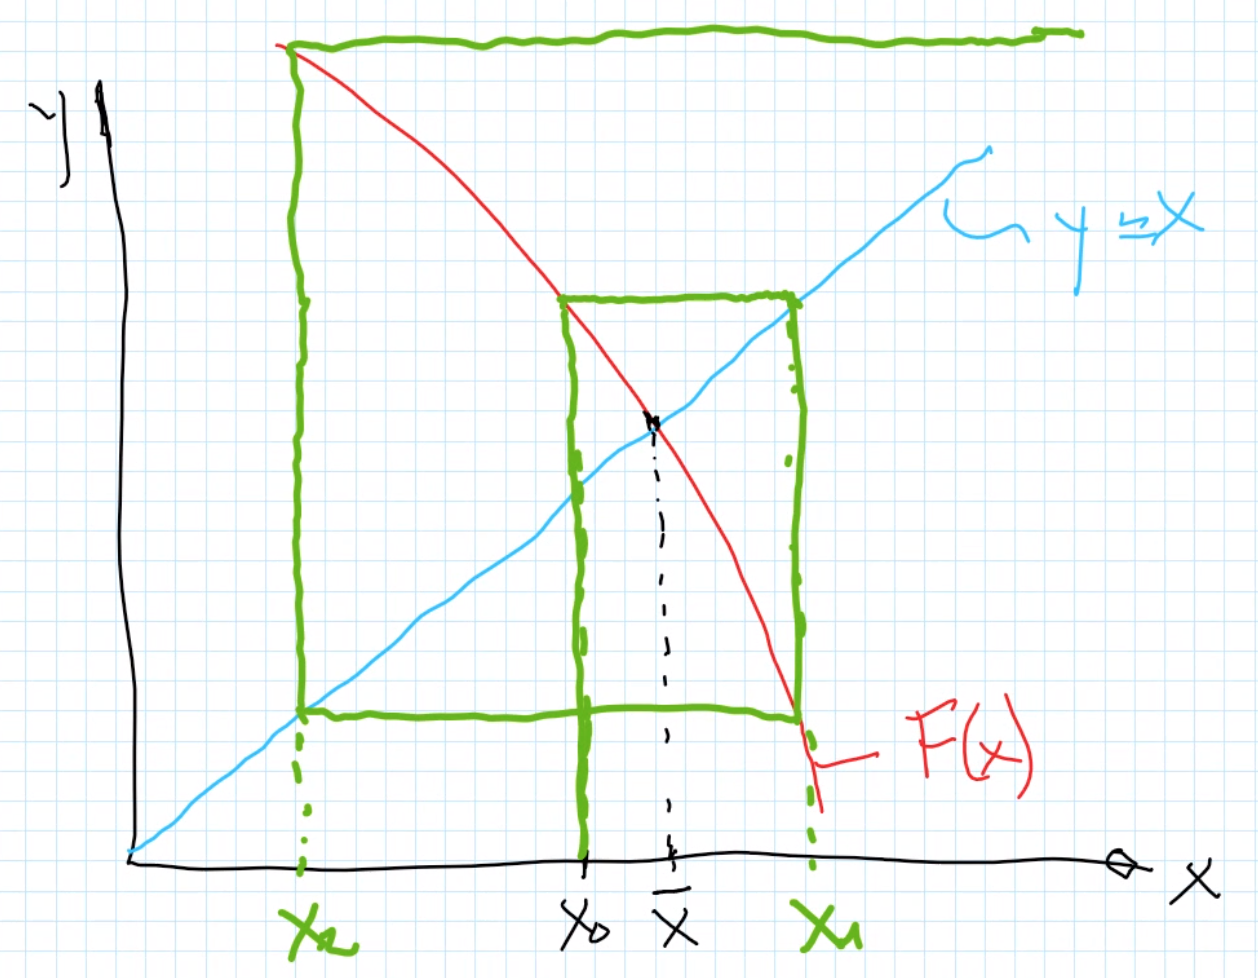 y
y = x
F(x)
x
x₂
x₀
x̄
x₁